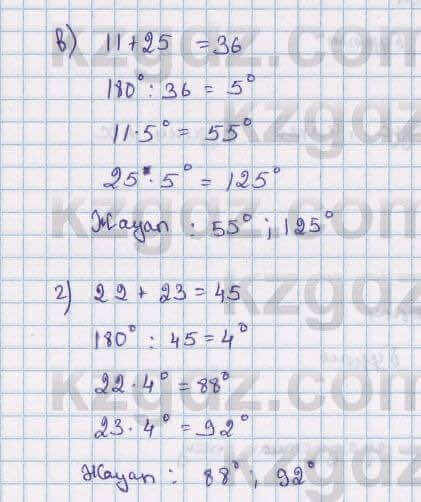 в) 11+25 = 36
180° : 36 = 5°
11·5° = 55°
25·5° = 125°
Жауап : 55° ; 125°
г) 22 + 23 = 45
180° : 45 = 4°
22·4° = 88°
23·4° = 92°
Жауап : 88° ; 92°